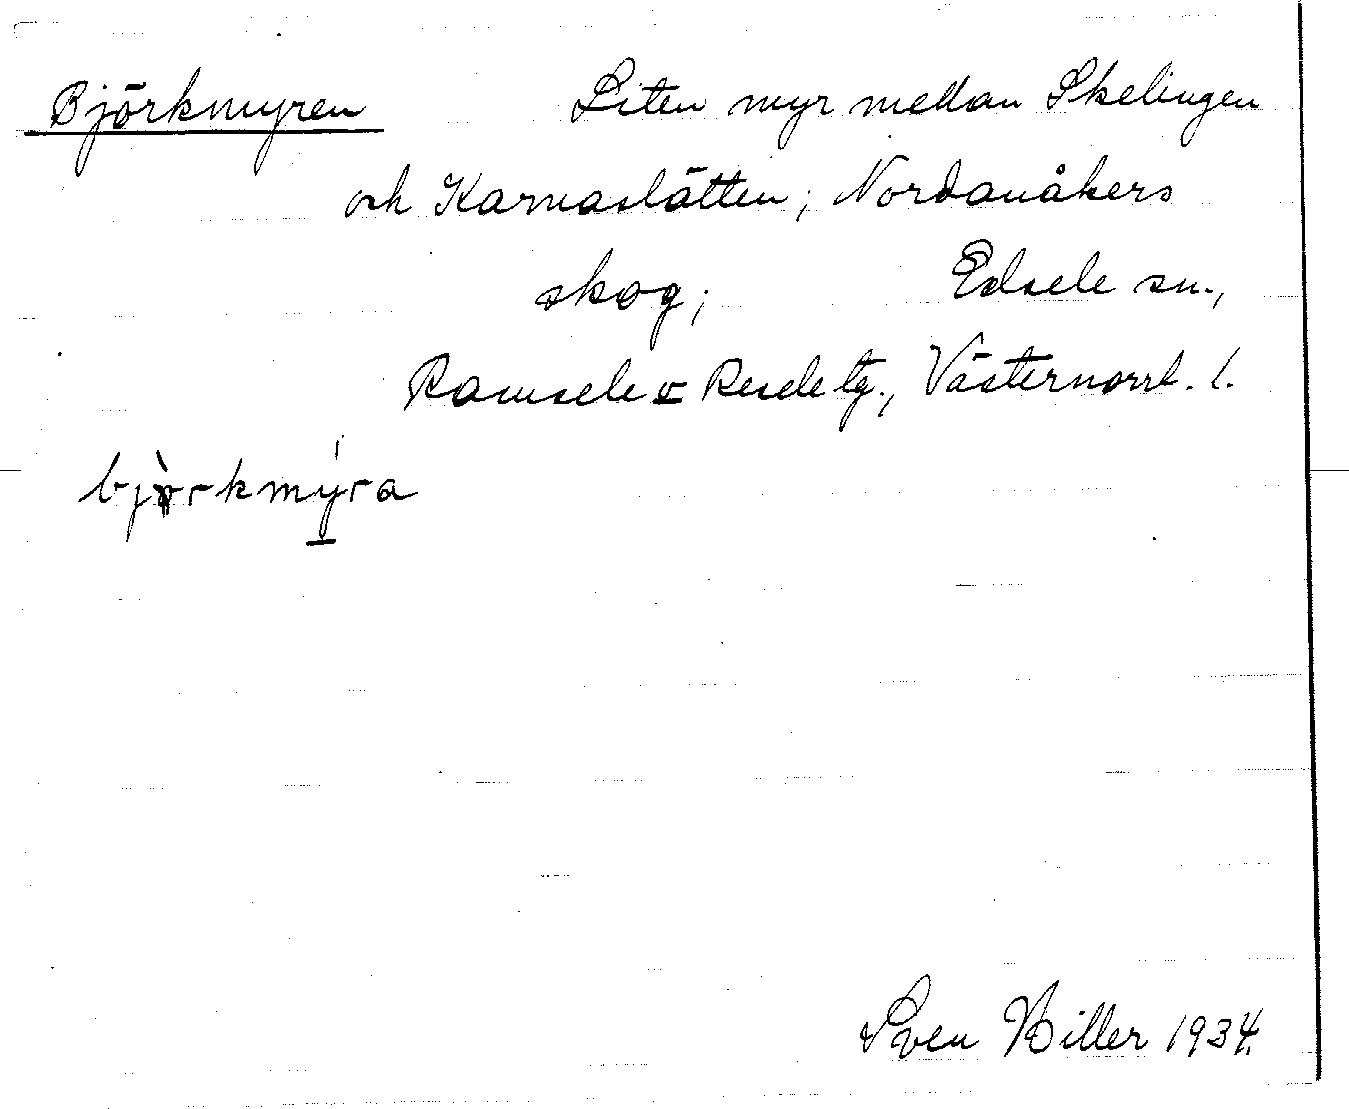 Björkmyren Liten myr mellan Skelingen
och Karnaslätten; Nordanåkers
skog; Edsele sn.,
Ramsele o Resele tg., Västernorrl. l.
björkmýra
Sven Hiller 1934.